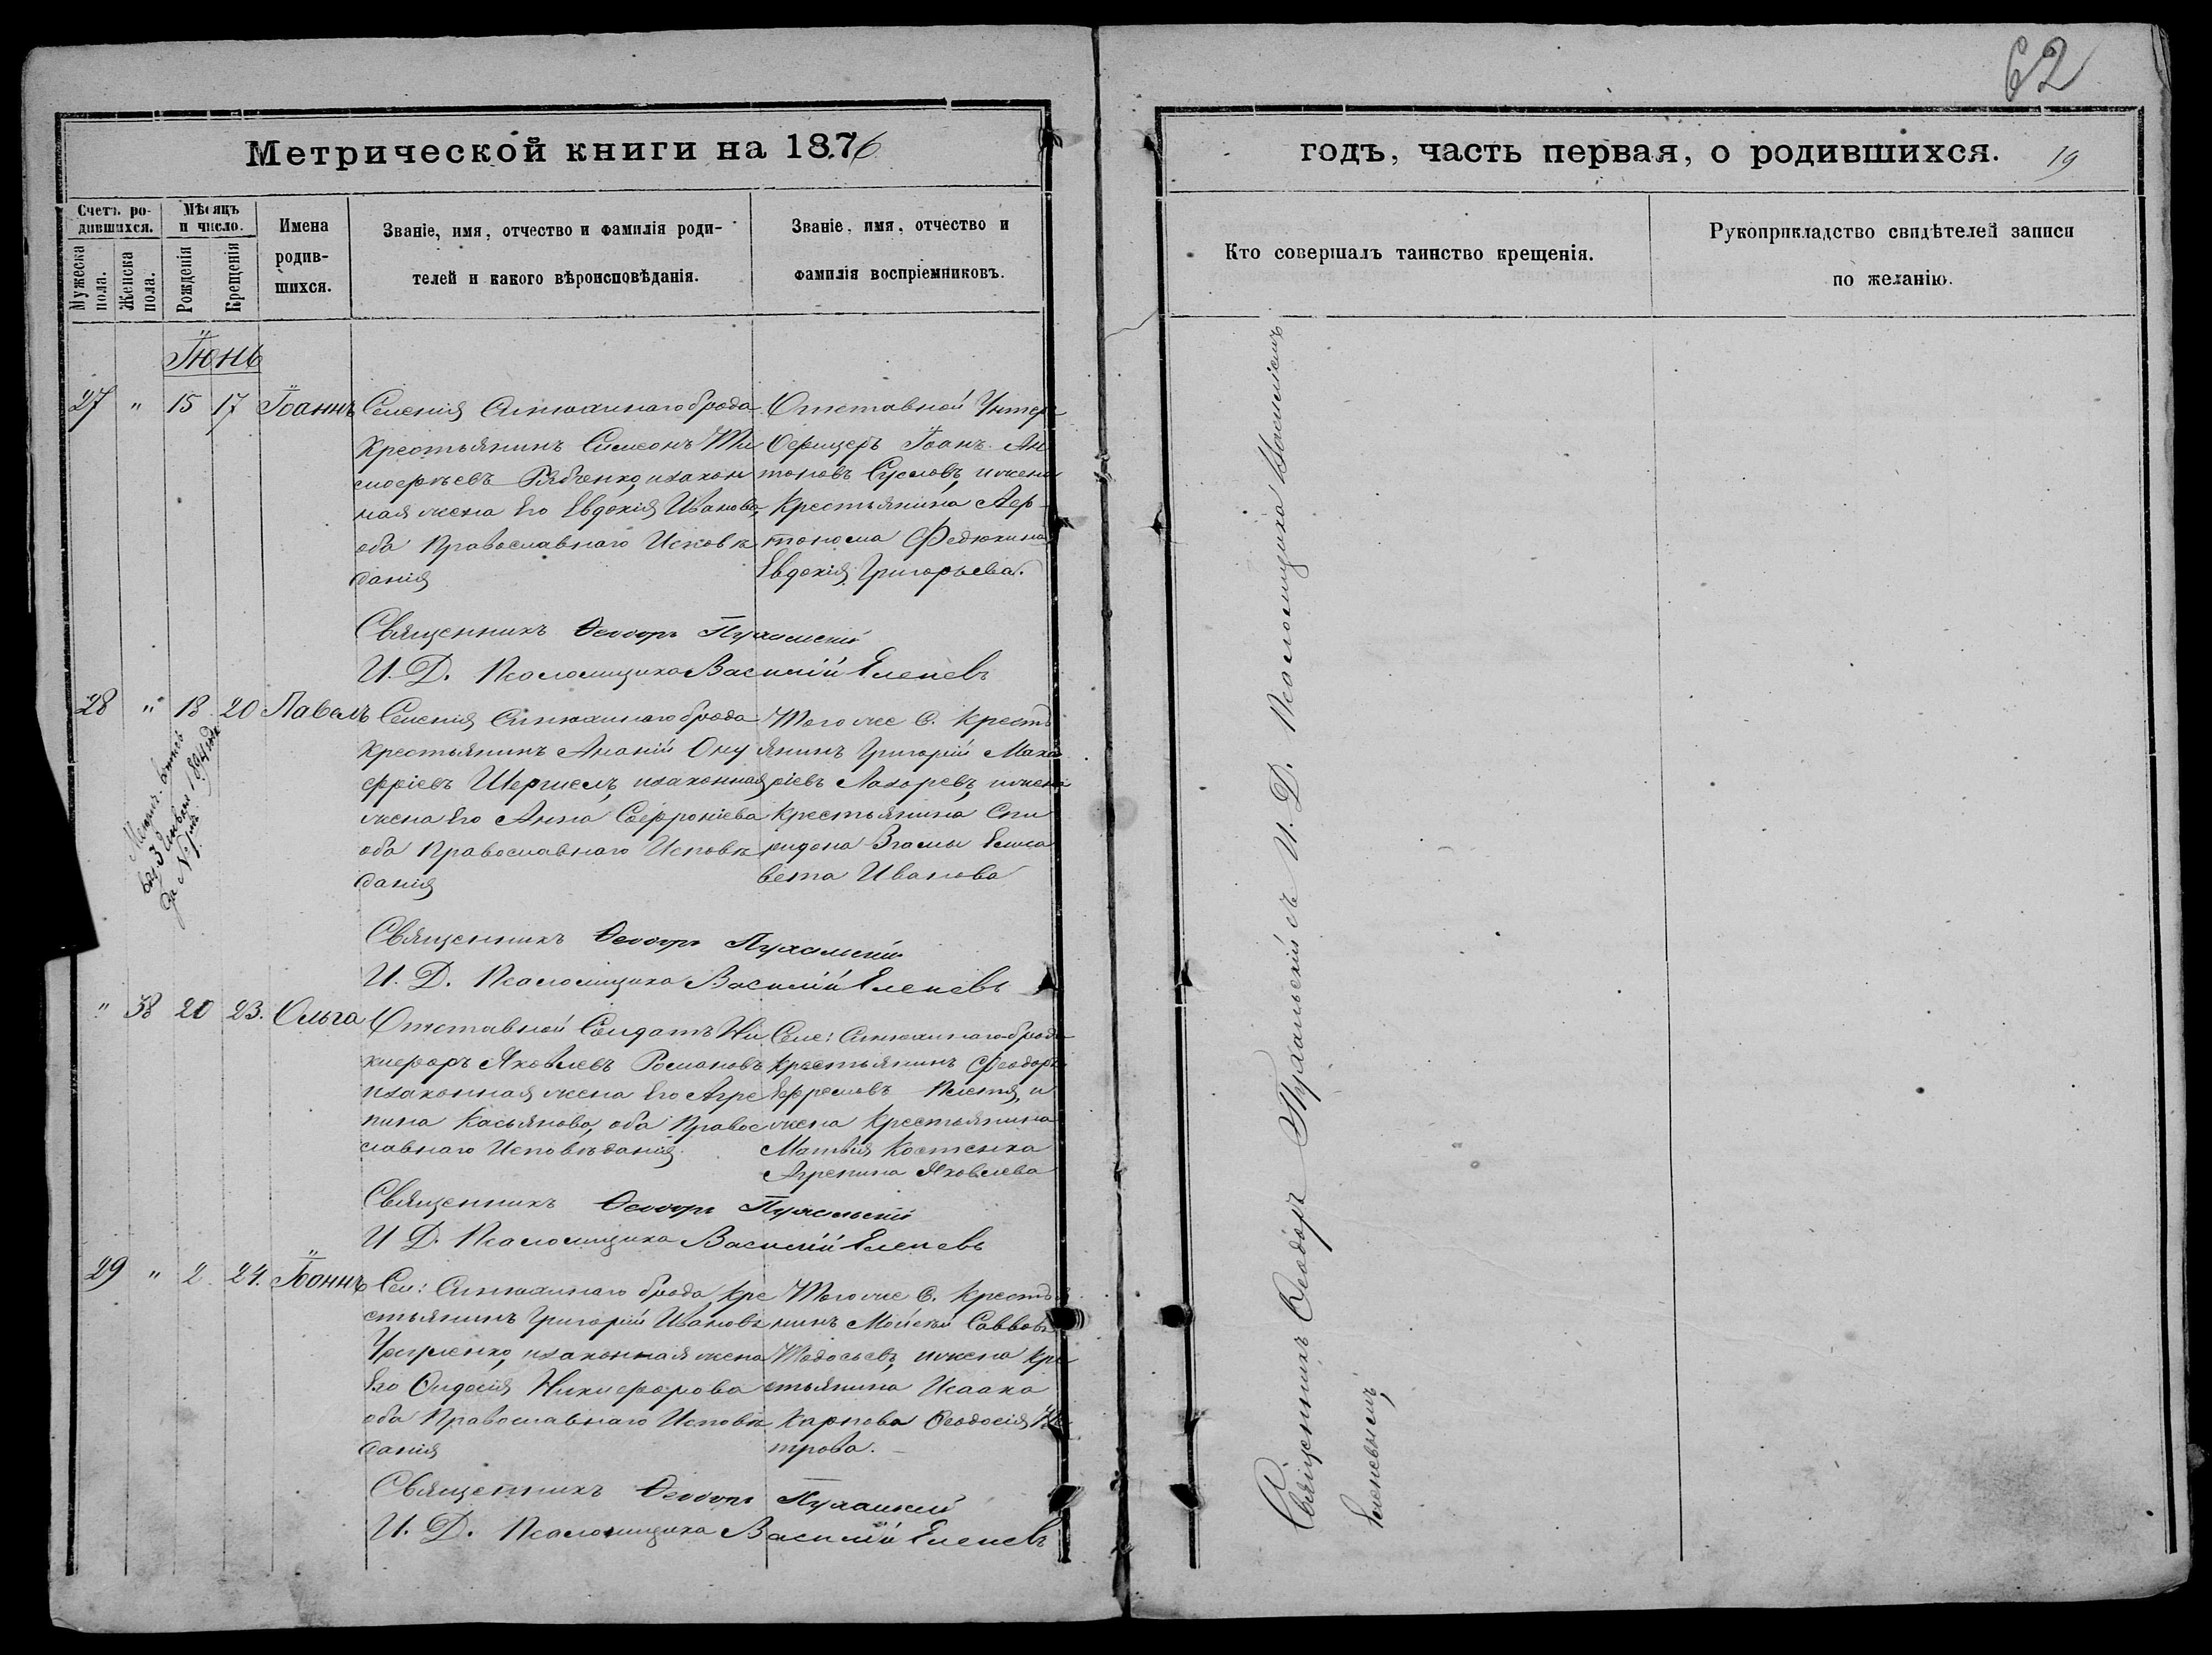 62
Метрической книги на 1876
годъ, часть первая, о родившихся. 19
Счетъ ро-
дившихся.
Мужеска пола.
Женска пола.
Мѣсяцъ
и число.
Рожденія
Крещенія
Имена
родив-
шихся.
Званіе, имя, отчество и фамилія роди-
телей и какого вѣроисповѣданія.
Званіе, имя, отчество и
фамилія воспріемниковъ.
Кто совершалъ таинство крещенія.
Рукоприкладство свидѣтелей записи
по желанію.
Іюнь
27 " 15 17 Іоаннъ
Селенія Синюхинаго брода
Крестьянинъ Симеонъ Ти
моѳеевъ Рябченко, изакон
ная жена Его Евдокія Иванова,
оба Православнаго Исповѣ
данія
Отставной Унтеръ
Офицеръ Іоанъ Ан
тоновъ Сусловъ, ижена
Крестьянина
Федюкина
Евдокія Григорьева.
Священникъ Ѳеодоръ Пухальскій
И. Д. Псаломщика Василій Еленевъ
28 " 18 20 Павелъ
Селенія Синюхинаго брода
Крестьянинъ Ананій Ону
фріевъ изаконная
жена Его Анна Софроніева
оба Православнаго Исповѣ
данія
Того же С. Кресть
янинъ Григорій Мака
ріевъ Лазоревъ, ижена
Крестьянина Спи
ридона Елиса
вета Иванова
Священникъ Ѳеодоръ Пухальскій
И. Д. Псаломщика Василій Еленевъ
" 38 20 23. Ольга
Отставной Солдатъ Ни
кифоръ Яковлевъ Романовъ
изаконная жена Его Агре
пина Касьянова, оба Правос
лавнаго Исповѣданія.
Селе: Синюхинаго-брода
Крестьянинъ Феодоръ
Ефремовъ и
жена Крестьянина
Матвѣя Костенка
Агрепина Яковлева
Священникъ Ѳеодоръ Пухальскій
И Д. Псаломщика Василій Еленевъ
29 " 2 24. Іоаннъ
Сел: Синюхинаго брода Кре
стьянинъ Григорій Ивановъ
изаконная жена
Его Ѳидосія Никифорова
оба Православнаго Исповѣ
данія
Того же С. Крестья
нинъ Мойсей Саввовъ
Тодосьевъ, ижена Кре
стьянина Исаака
Карпова Ѳеодосія Пе
трова.
Священникъ Ѳеодоръ Пухальскій
И. Д. Псаломщика Василій Еленевъ
Священникъ Ѳеодоръ Пухальскій съ И. Д. Псаломщика Василіемъ
Еленевымъ